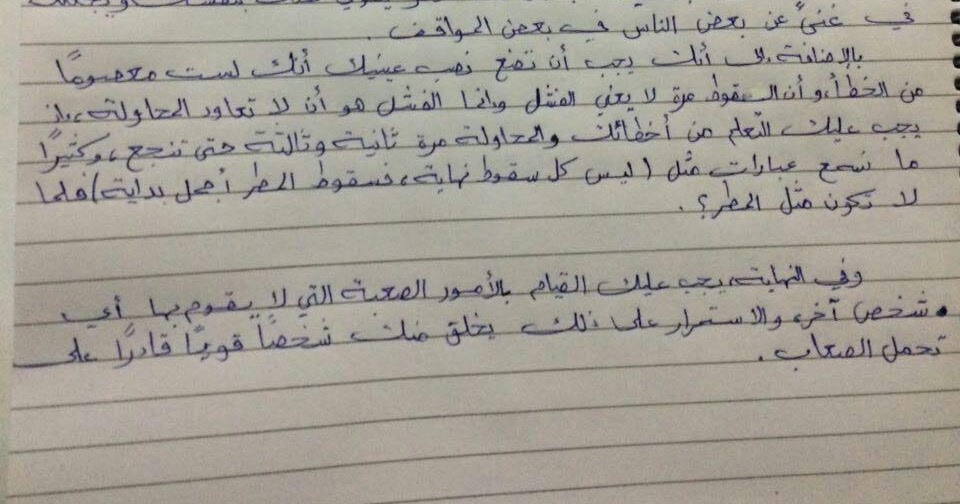 في غنىً عن بعض الناس في بعض المواقف.
بالإضافة إلى أنك يجب أن تضع نصب عينيك أنك لست معصوماً
من الخطأ، وأن السقوط مرة لا يعني الفشل وإنما الفشل هو أن لا تعاود المحاولة، إذ
يجب عليك التعلم من أخطائك والمحاولة مرة ثانية وثالثة حتى تنجح، وكثيراً
ما نسمع عبارات مثل (ليس كل سقوط نهاية، فسقوط المطر أجمل بداية) فلما
لا تكون مثل المطر؟.
وفي النهاية، يجب عليك القيام بالأمور الصعبة التي لا يقوم بها أي
شخص آخر، والاستمرار على ذلك يخلق منك شخصاً قوياً قادراً على
تحمل الصعاب.